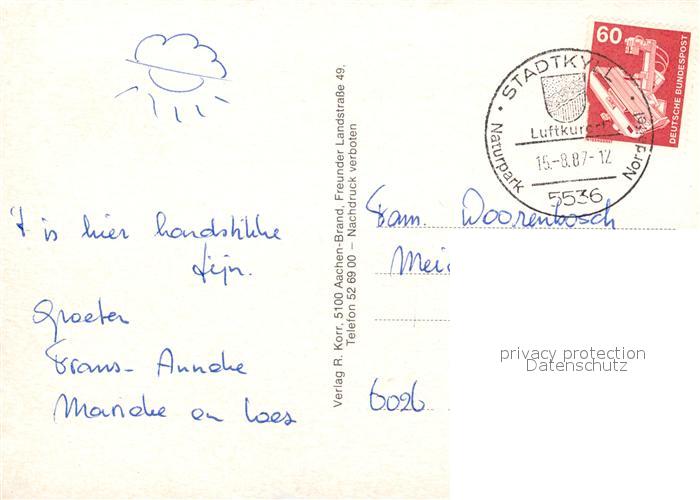 't is hier hardstikke
fijn.
Groeten
Frans- Anneke
Marieke en Loes
Verlag R. Korr, 5100 Aachen-Brand, Freunder Landstraße 49.
Telefon 52 69 00 – Nachdruck verboten
60
DEUTSCHE BUNDESPOST
STADTKYLL
Luftkurort
Naturpark Nordeifel
15.-8.87-12
5536
Fam. Doorenbosch
Mei
6026
privacy protection
Datenschutz